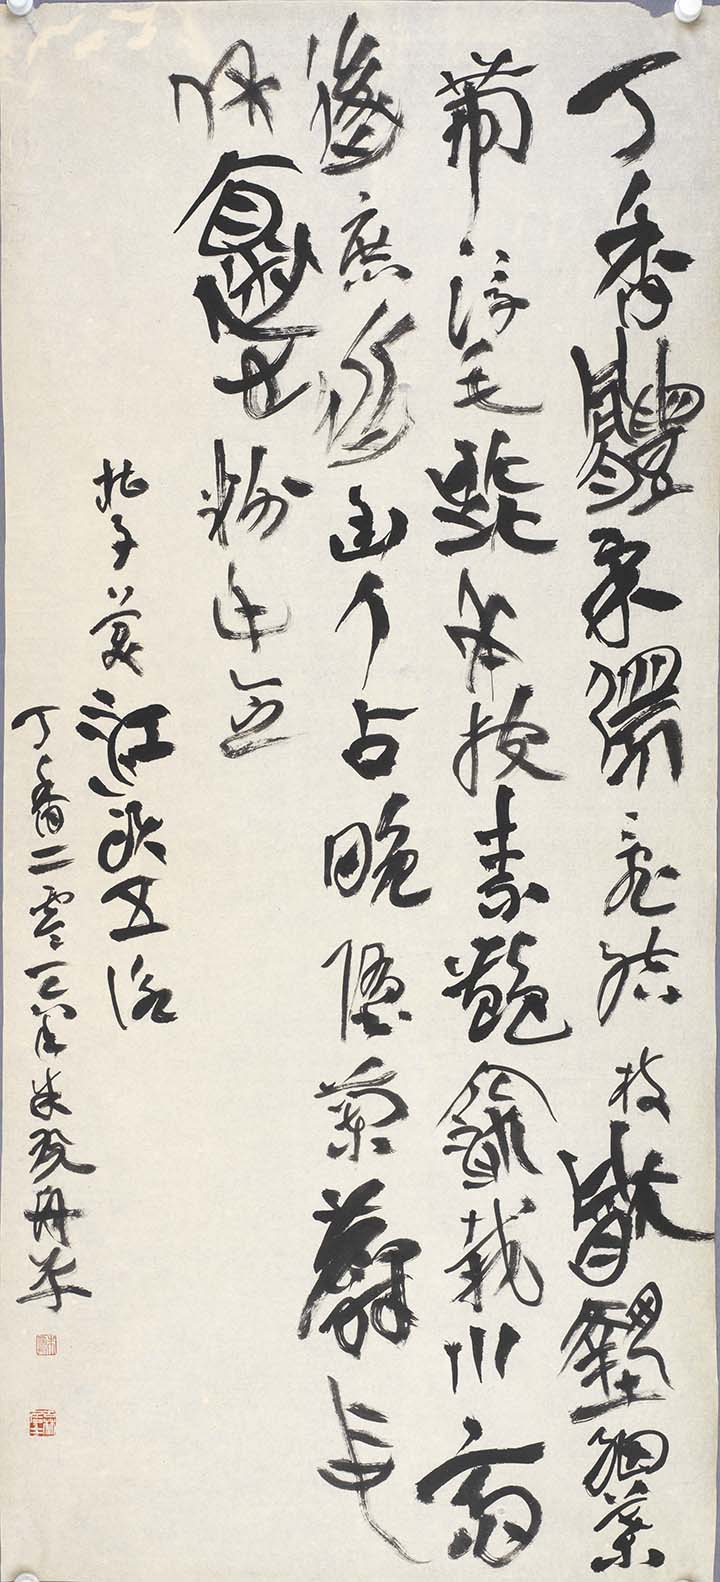 丁香體柔弱亂結枝猶墊細葉
帶浮毛疏花披素艷深栽小齋
後庶使幽人占晚墮蘭麝中
休懷粉身念
杜子美江頭五詠
丁香二零一六年朱